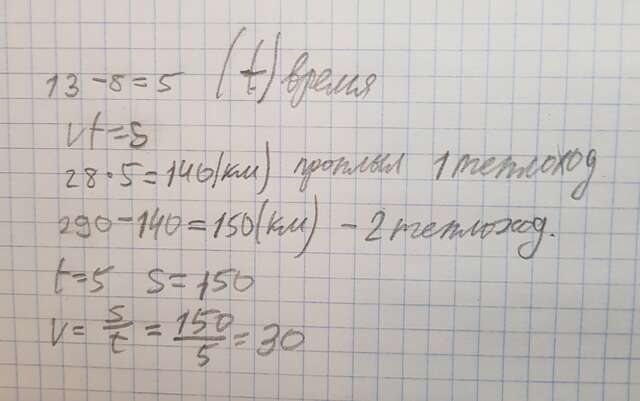 13-8=5 (t) время
vt=S
28·5=140(км) проплыл 1 теплоход
290-140=150(км) - 2 теплоход.
t=5 S=150
v= S/t = 150/5 = 30